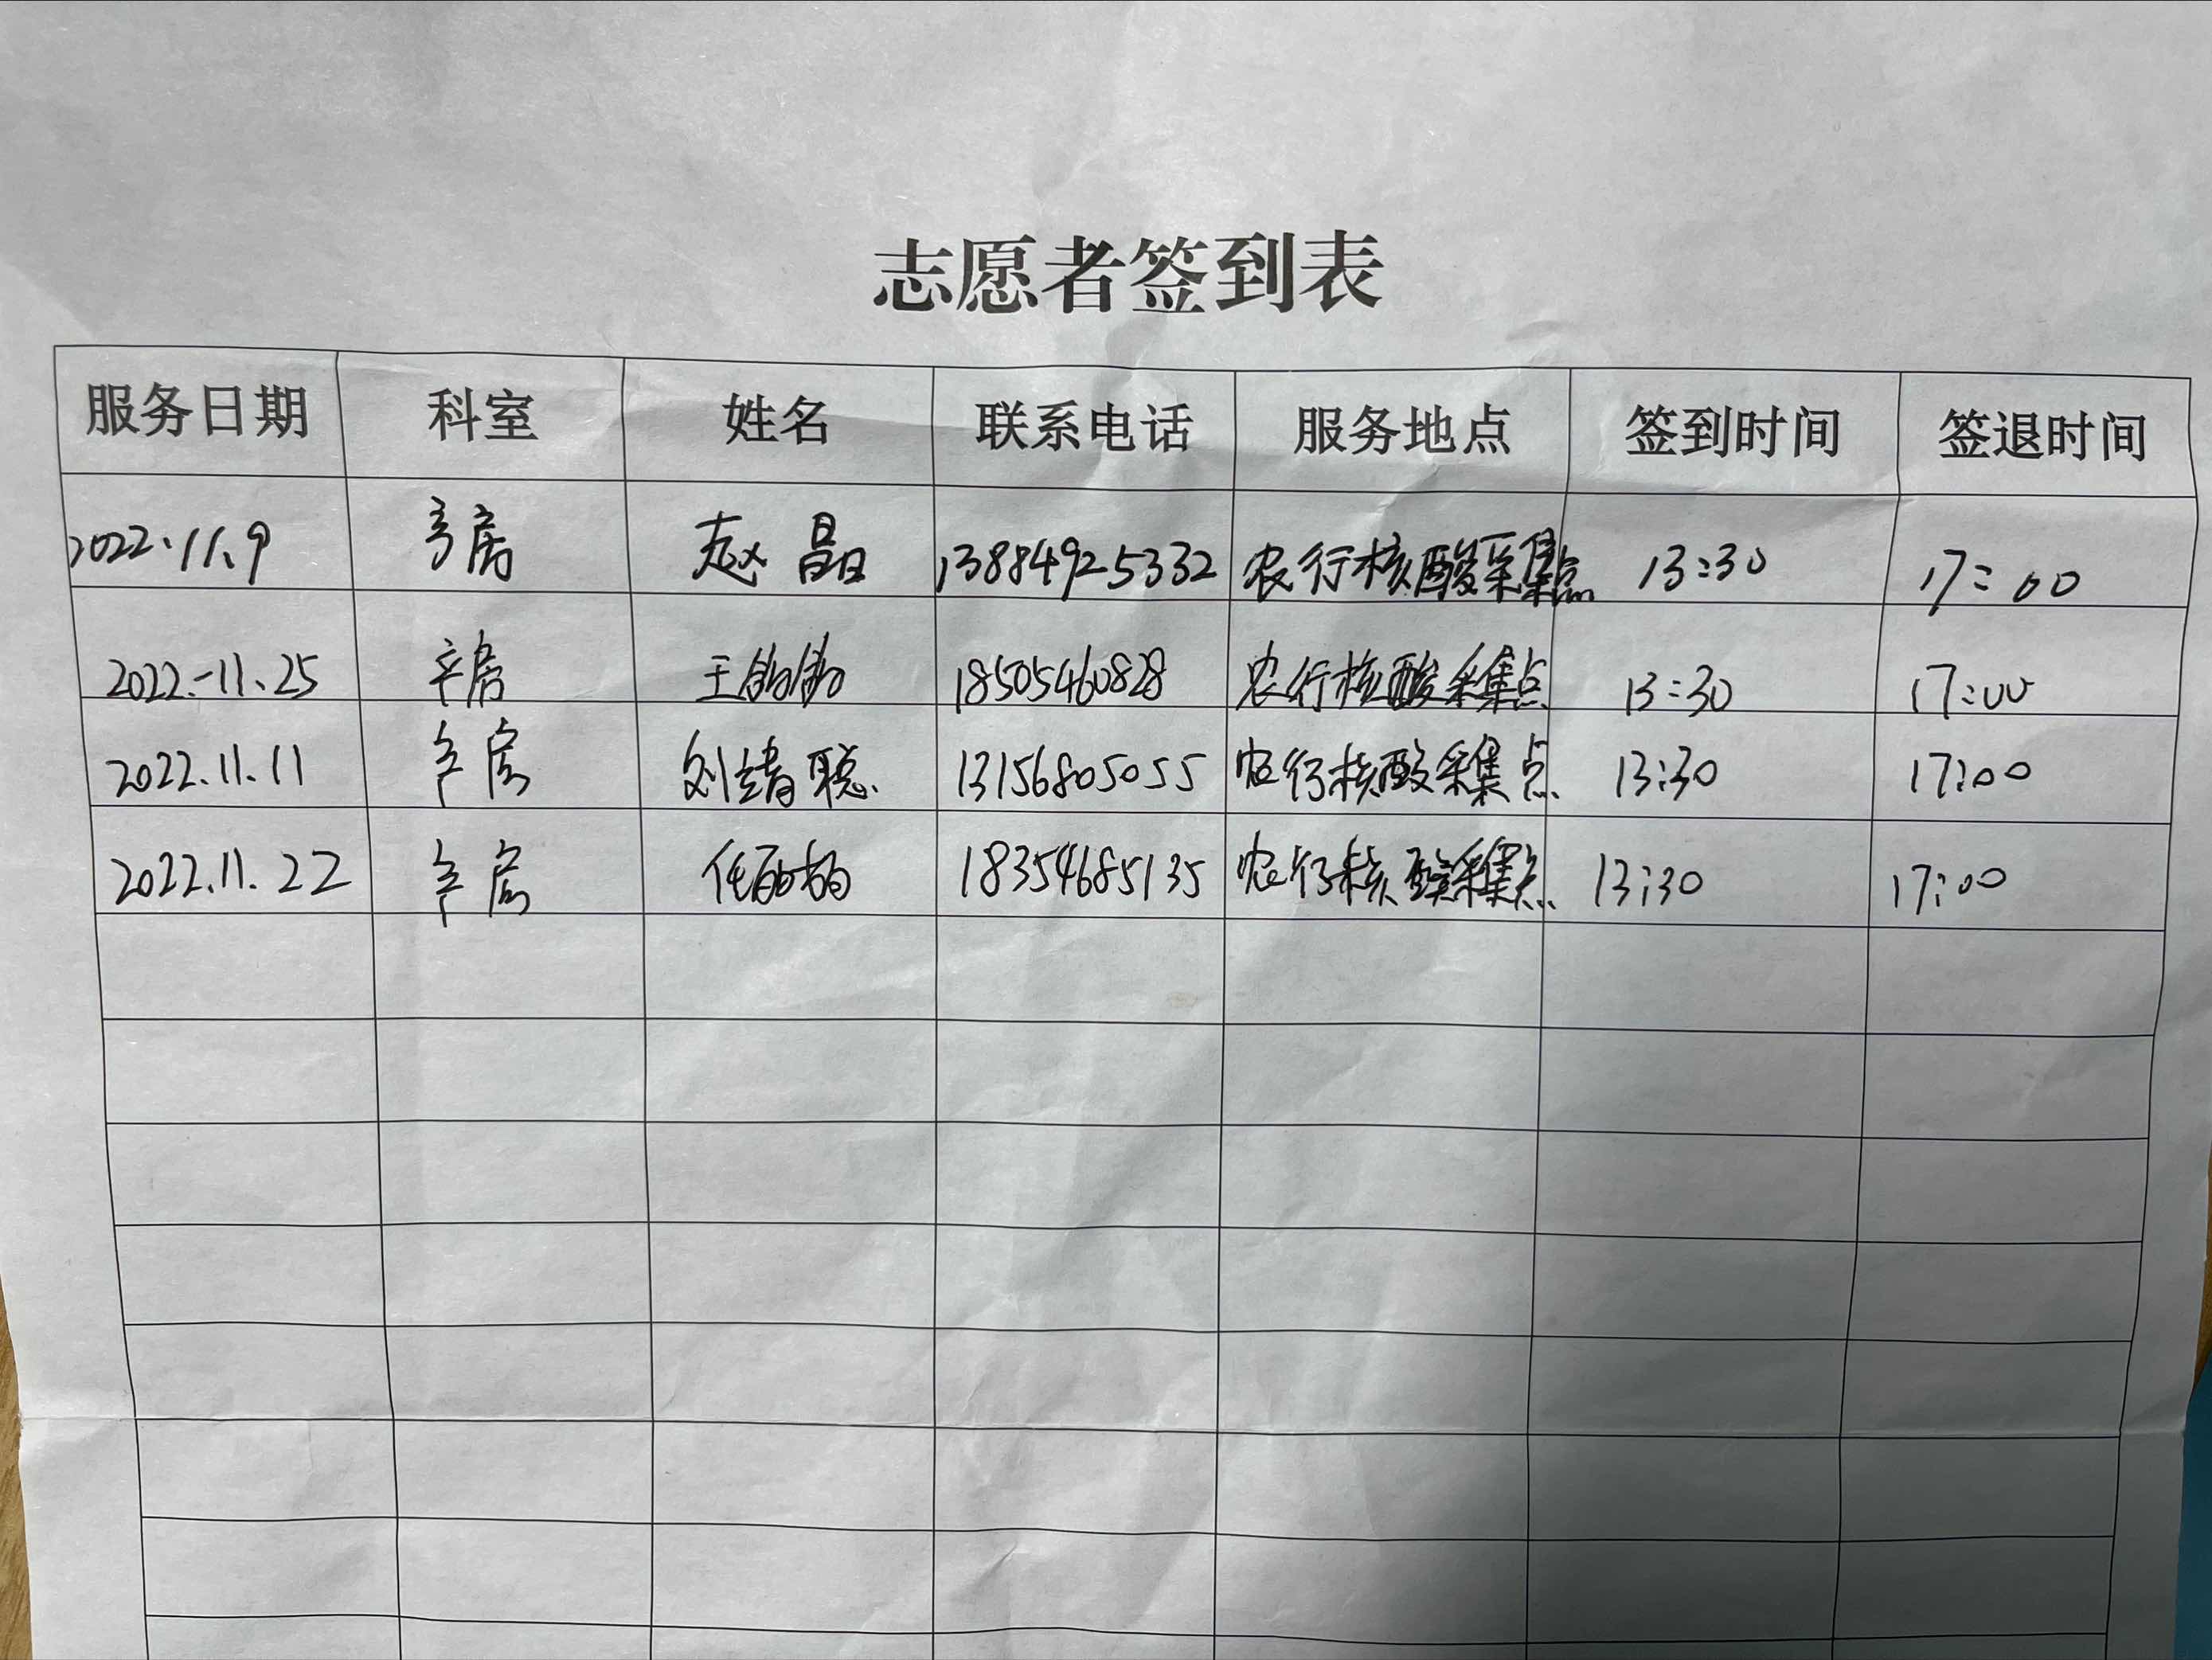 志愿者签到表
服务日期 科室 姓名 联系电话 服务地点 签到时间 签退时间
2022.11.9 产房 赵晶 13884925332 农行核酸采集点 13:30 17:00
2022.-11.25 产房 王 18505460828 农行核酸采集点 13:30 17:00
2022.11.11 产房 刘靖聪 13156805055 农行核酸采集点 13:30 17:00
2022.11.22 产房 任 18354685135 农行核酸采集点 13:30 17:00